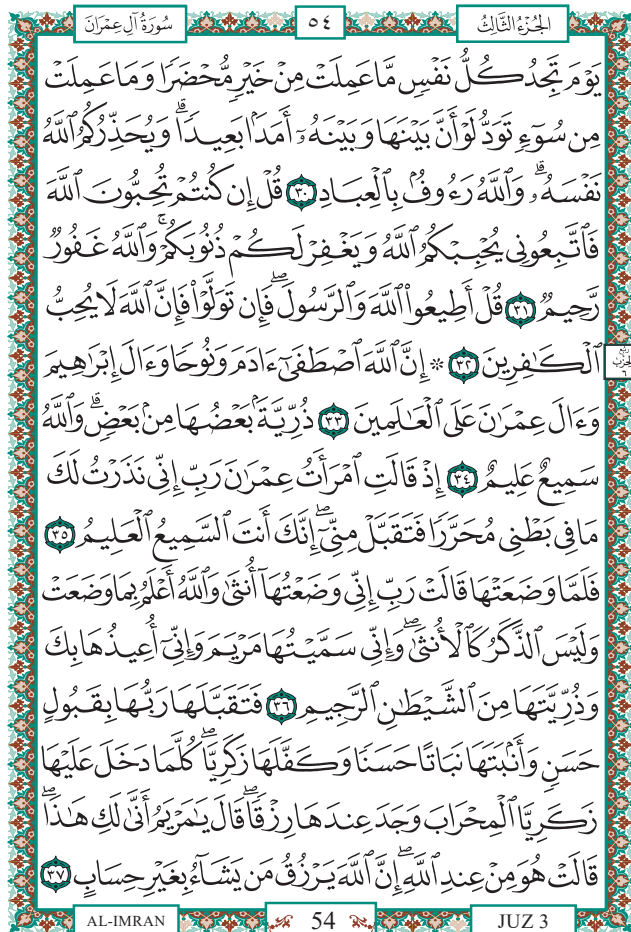 سُورَةُ آلِ عِمْرَانَ ٥٤ الجُزْءُ الثَّالِثُ
يَوْمَ تَجِدُ كُلُّ نَفْسٍ مَّا عَمِلَتْ مِنْ خَيْرٍ مُّحْضَرًا وَمَا عَمِلَتْ
مِن سُوٓءٍ تَوَدُّ لَوْ أَنَّ بَيْنَهَا وَبَيْنَهُۥٓ أَمَدَۢا بَعِيدًاۗ وَيُحَذِّرُكُمُ ٱللَّهُ
نَفْسَهُۥۗ وَٱللَّهُ رَءُوفُۢ بِٱلْعِبَادِ ٣٠ قُلْ إِن كُنتُمْ تُحِبُّونَ ٱللَّهَ
فَٱتَّبِعُونِى يُحْبِبْكُمُ ٱللَّهُ وَيَغْفِرْ لَكُمْ ذُنُوبَكُمْۚ وَٱللَّهُ غَفُورٌ
رَّحِيمٌ ٣١ قُلْ أَطِيعُوا۟ ٱللَّهَ وَٱلرَّسُولَۖ فَإِن تَوَلَّوْا۟ فَإِنَّ ٱللَّهَ لَا يُحِبُّ
ٱلْكَٰفِرِينَ ٣٢ ۞ إِنَّ ٱللَّهَ ٱصْطَفَىٰٓ ءَادَمَ وَنُوحًا وَءَالَ إِبْرَٰهِيمَ
وَءَالَ عِمْرَٰنَ عَلَى ٱلْعَٰلَمِينَ ٣٣ ذُرِّيَّةَۢ بَعْضُهَا مِنۢ بَعْضٍۗ وَٱللَّهُ
سَمِيعٌ عَلِيمٌ ٣٤ إِذْ قَالَتِ ٱمْرَأَتُ عِمْرَٰنَ رَبِّ إِنِّى نَذَرْتُ لَكَ
مَا فِى بَطْنِى مُحَرَّرًا فَتَقَبَّلْ مِنِّىٓۖ إِنَّكَ أَنتَ ٱلسَّمِيعُ ٱلْعَلِيمُ ٣٥
فَلَمَّا وَضَعَتْهَا قَالَتْ رَبِّ إِنِّى وَضَعْتُهَآ أُنثَىٰ وَٱللَّهُ أَعْلَمُ بِمَا وَضَعَتْ
وَلَيْسَ ٱلذَّكَرُ كَٱلْأُنثَىٰۖ وَإِنِّى سَمَّيْتُهَا مَرْيَمَ وَإِنِّىٓ أُعِيذُهَا بِكَ
وَذُرِّيَّتَهَا مِنَ ٱلشَّيْطَٰنِ ٱلرَّجِيمِ ٣٦ فَتَقَبَّلَهَا رَبُّهَا بِقَبُولٍ
حَسَنٍ وَأَنۢبَتَهَا نَبَاتًا حَسَنًا وَكَفَّلَهَا زَكَرِيَّاۖ كُلَّمَا دَخَلَ عَلَيْهَا
زَكَرِيَّا ٱلْمِحْرَابَ وَجَدَ عِندَهَا رِزْقًاۖ قَالَ يَٰمَرْيَمُ أَنَّىٰ لَكِ هَٰذَاۖ
قَالَتْ هُوَ مِنْ عِندِ ٱللَّهِۖ إِنَّ ٱللَّهَ يَرْزُقُ مَن يَشَآءُ بِغَيْرِ حِسَابٍ ٣٧
AL-IMRAN 54 JUZ 3